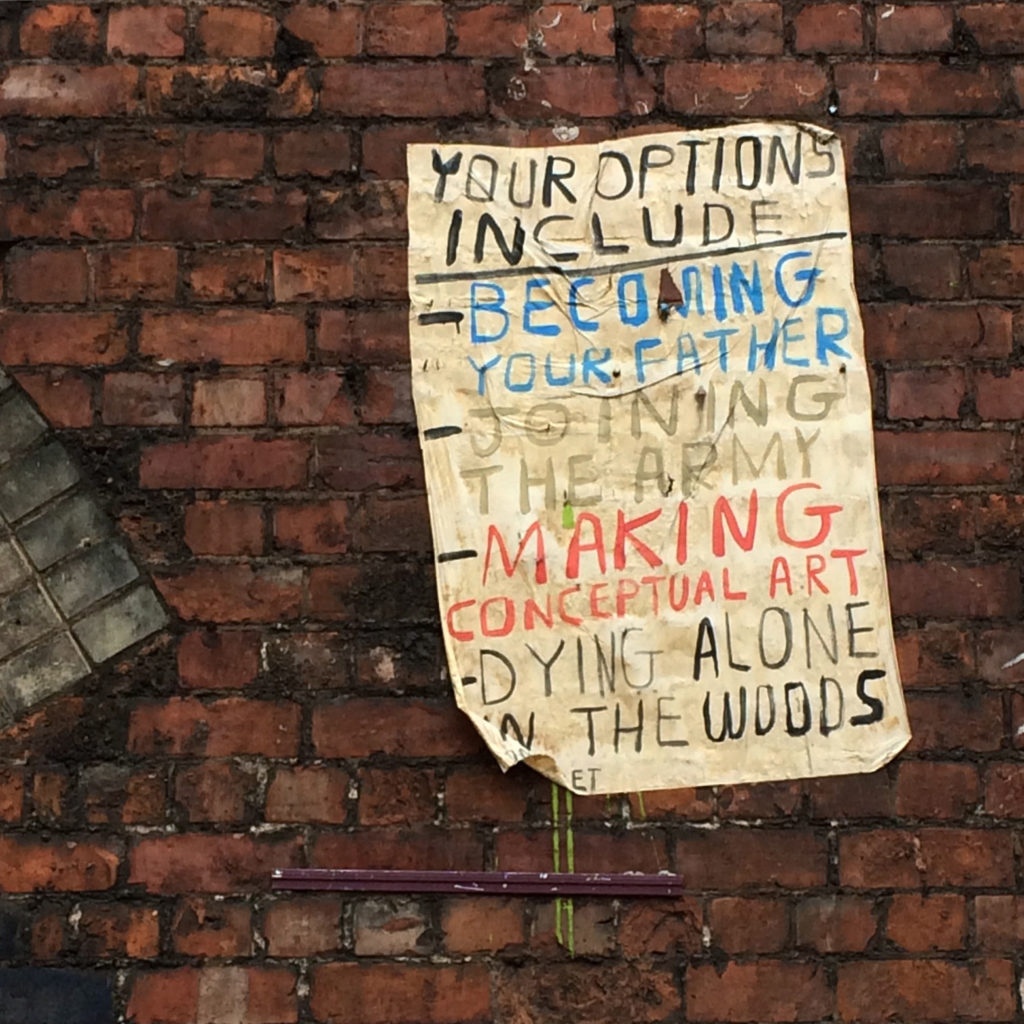 YOUR OPTIONS
INCLUDE
- BECOMING
YOUR FATHER
- JOINING
THE ARMY
- MAKING
CONCEPTUAL ART
- DYING ALONE
IN THE WOODS
ET